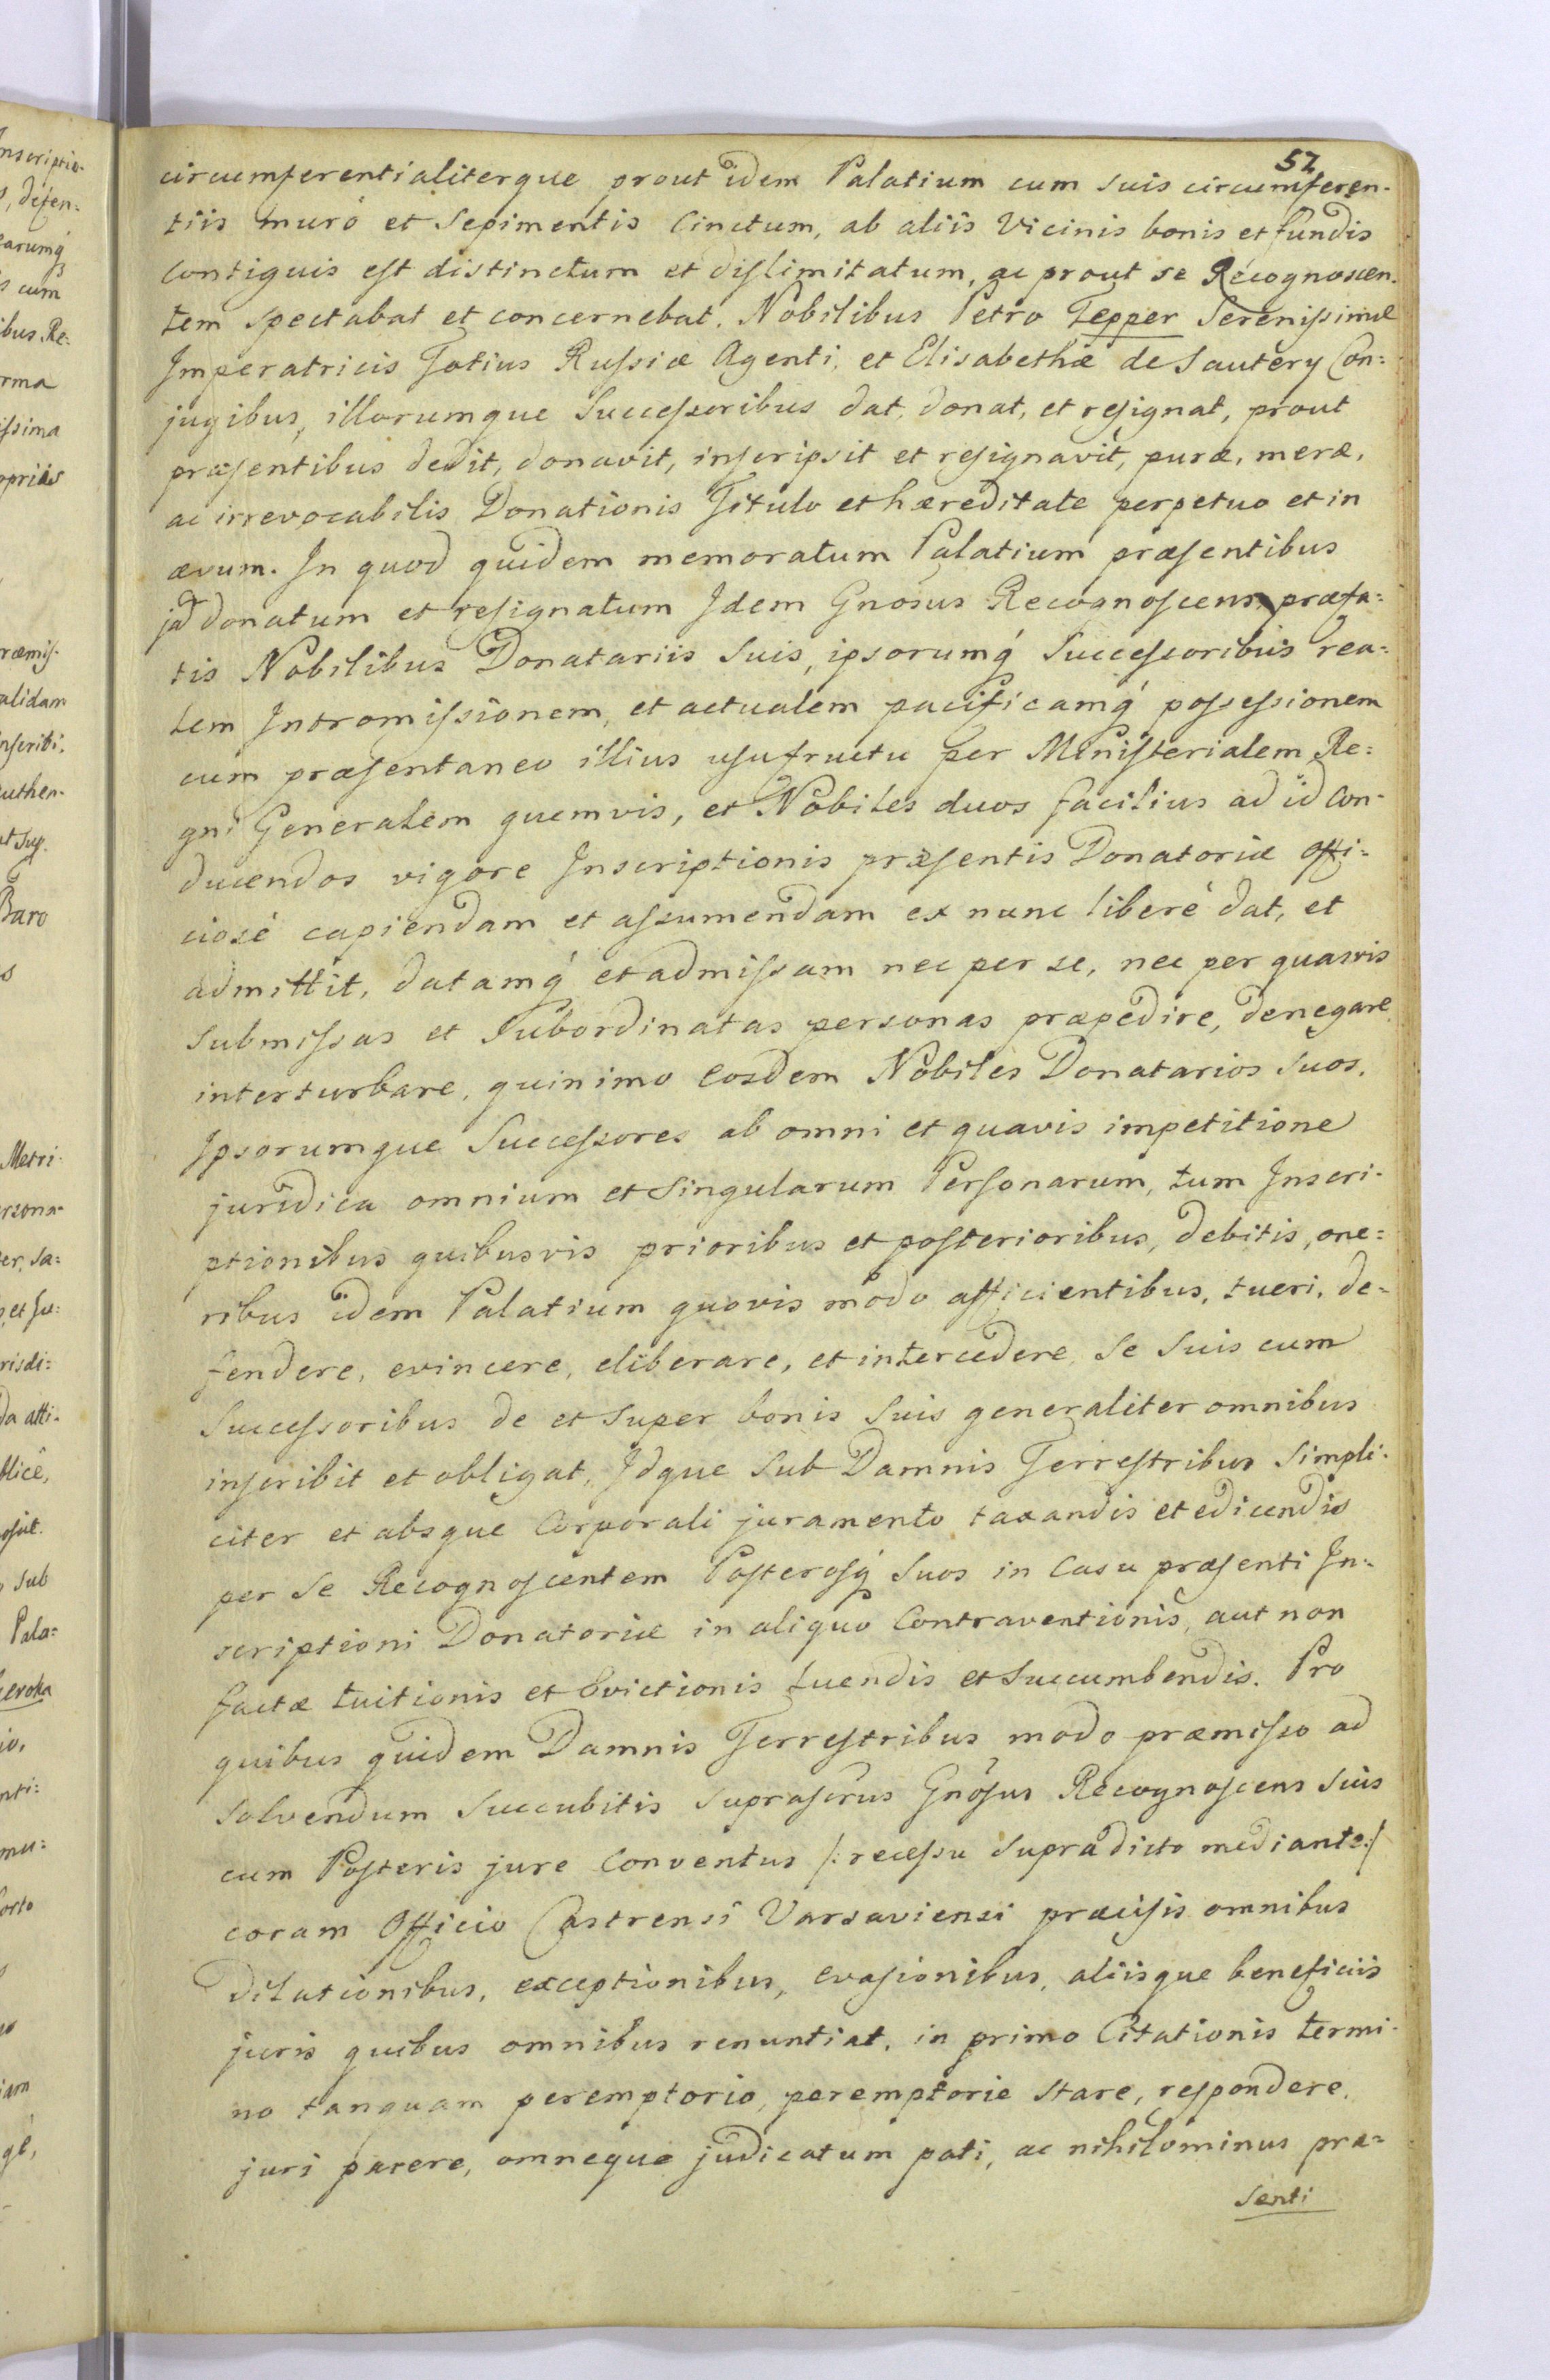 52
circumferentialiterque prout idem Palatium cum suis circumferen-
tiis muró et Sepimentis Cinctum, ab aliis Vicinis bonis et fundis
Contiguis est distinctum et dislimitatum, ac prout se Recognoscen-
tem spectabat et concernebat. Nobilibus Petro Tepper Serenissimæ
Imperatricis Totius Russiæ Agenti, et Elisabethæ de Sautery Con=
jugibus, illorumque Successoribus dat, donat, et resignat, prout
præsentibus dedit, donavit, inscripsit et resignavit, puræ, meræ,
ac irrevocabilis Donationis Titulo et hæreditate perpetuo et in
ævum. In quod quidem memoratum Palatium præsentibus
jã donatum et resignatum Idem Gnosus Recognoscens præfa=
tis Nobilibus Donatariis Suis, ipsorumq́ Successoribus rea=
lem Intromissionem, et actualem pacificamq́ possessionem
cum præsentaneo illius usufructu per Ministerialem Re=
gni Generalem quemvis, et Nobiles duos facilius ad id Con-
ducendos vigore Inscriptionis præsentis Donatoriæ offi=
ciosé capiendam et assumendam ex nunc liberé dat, et
admittit, datamq́ et admissam nec per se, nec per quasvis
Submissas et Subordinatas personas præpedire, denegare,
interturbare, quinimo Eosdem Nobiles Donatarios Suos,
Ipsorumque Successores ab omni et quavis impetitione
juridica omnium et Singularum Personarum, tum Inscri-
ptionibus quibusvis prioribus et posterioribus, debitis, one=
ribus idem Palatium quovis modo afficientibus, tueri, de=
fendere, evincere, eliberare, et intercedere Se Suis cum
Successoribus de et Super bonis Suis generaliter omnibus
inscribit et obligat, Idque Sub Damnis Terrestribus Simpli-
citer et absque Corporali juramento taxandis et edicendis
per Se Recognoscentem Posterosq́ Suos in Casu præsenti In=
scriptioni Donatoriæ in aliquo Contraventionis, aut non
factæ tuitionis et Evictionis luendis et Succumbendis. Pro
quibus quidem Damnis Terrestribus modo præmisso ad
Solvendum Succubitis Suprascrus Gnosus Recognoscens Suis
cum Posteris jure Conventus /: recessu Supradicto mediante :/
coram Officio Castrensi Varsaviensi præcisis omnibus
Dilationibus, exceptionibus, evasionibus, aliisque beneficiis
juris quibus omnibus renuntiat, in primo Citationis termi-
no tanquam peremptorio, peremptorie Stare, respondere,
juri parere, omneque judicatum pati, ac nihilominus præ=
Senti